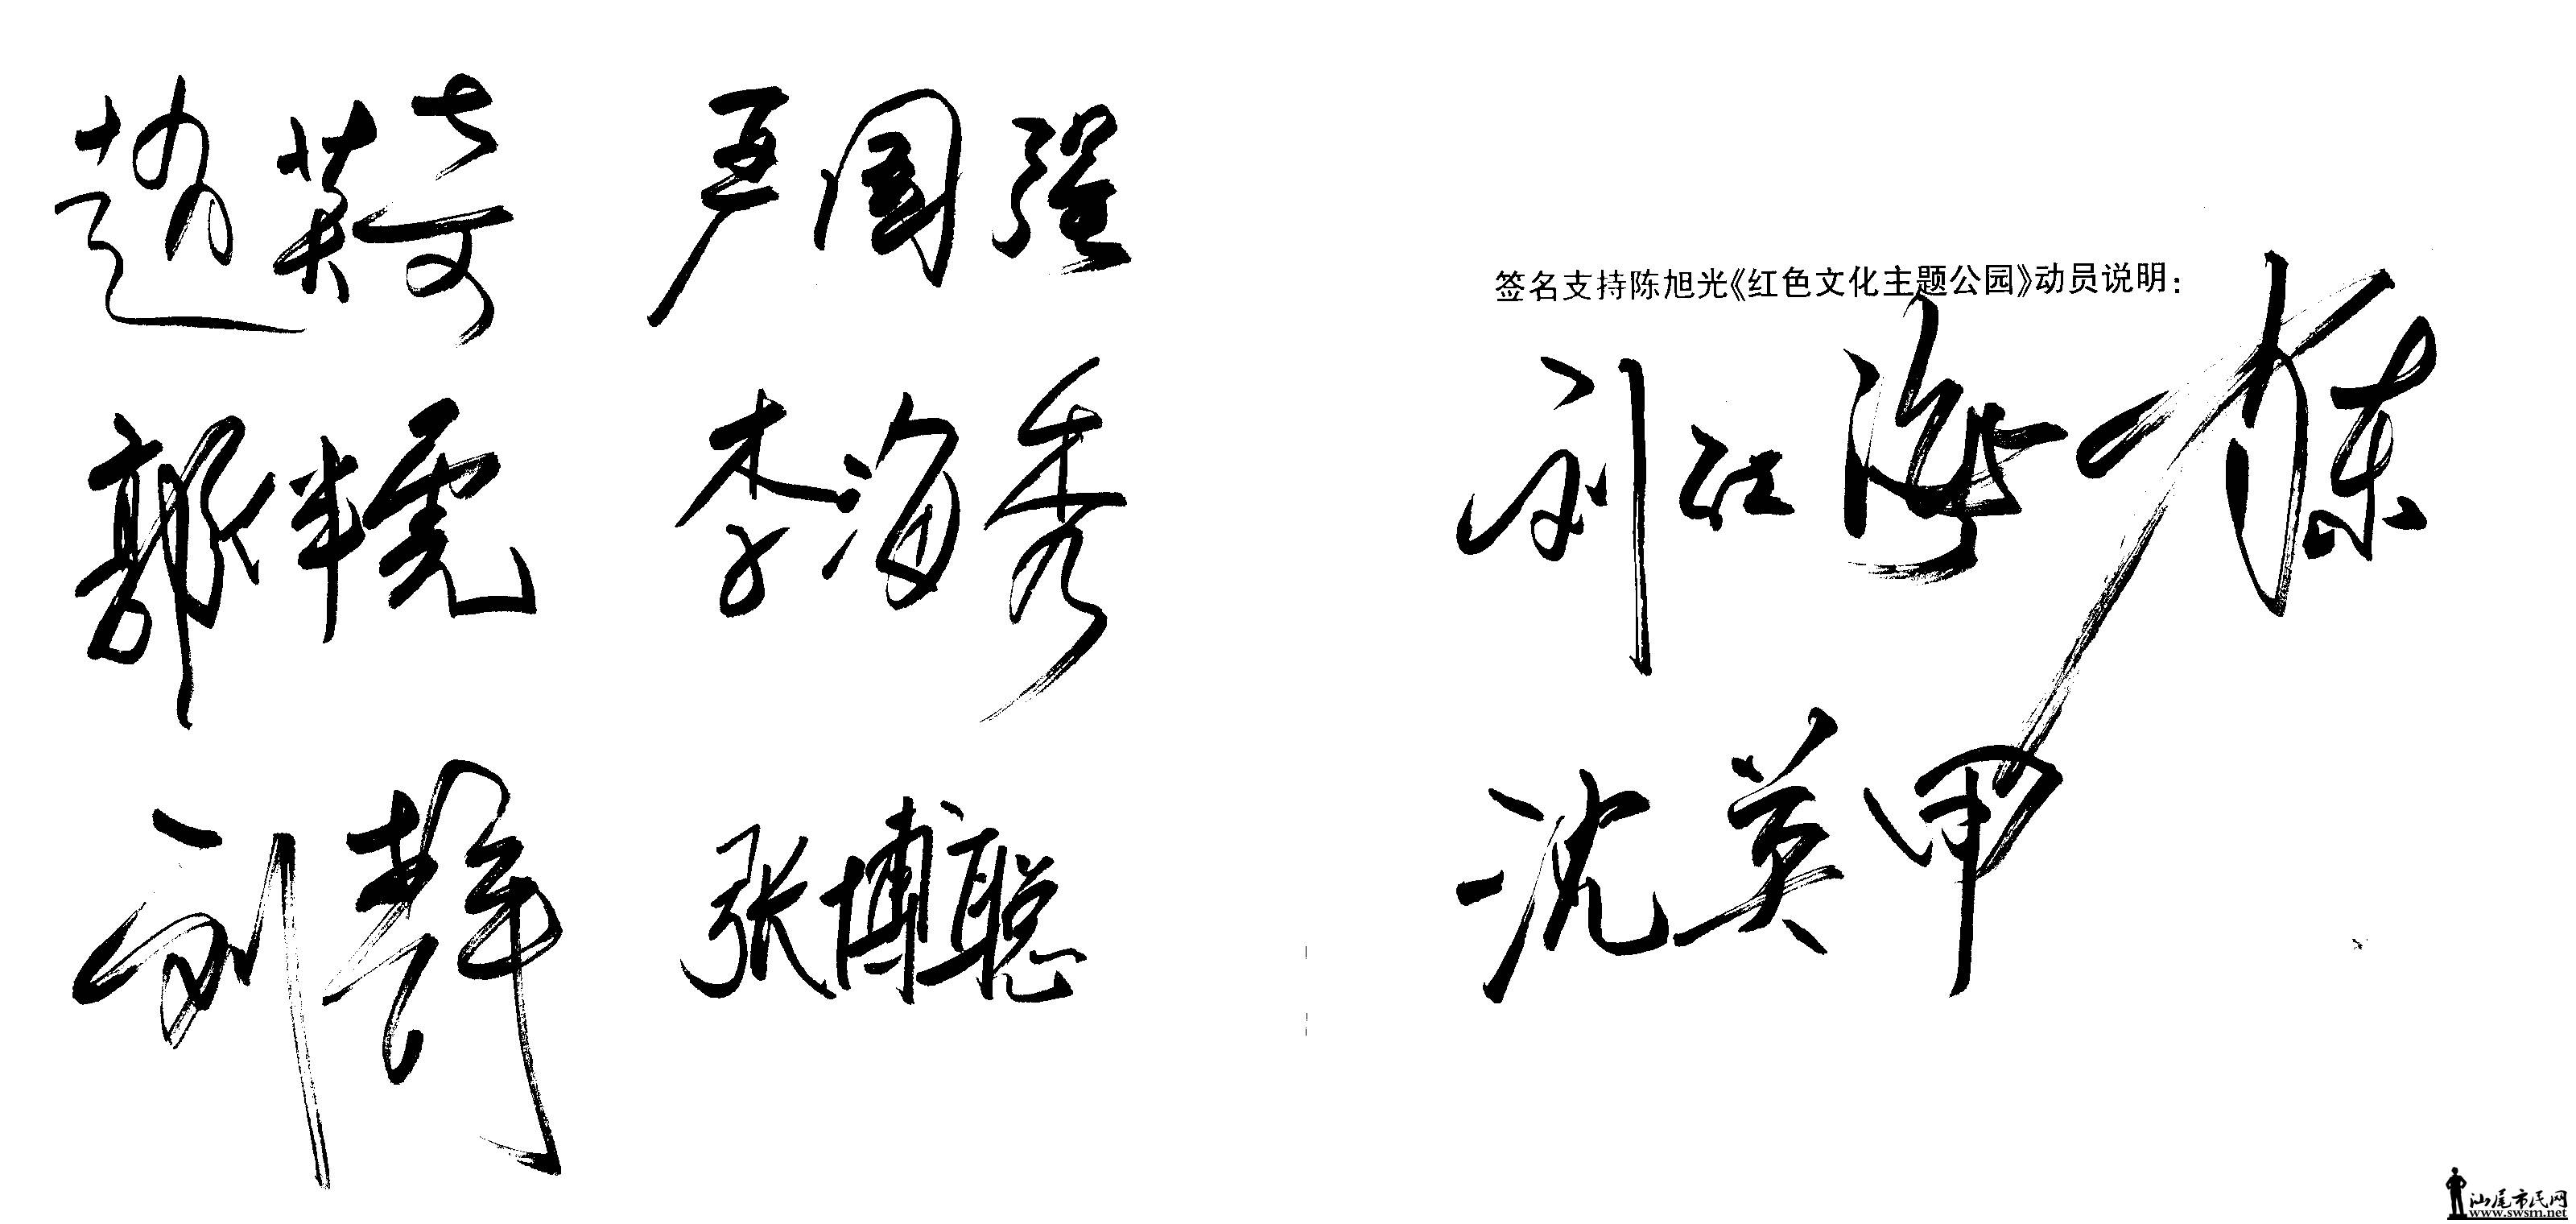 赵英奇 严国强
签名支持陈旭光《红色文化主题公园》动员说明：
刘红海 陈
郭伴霓 李海秀
刘静 张博聪
沈英甲
汕尾市民网
www.swsm.net